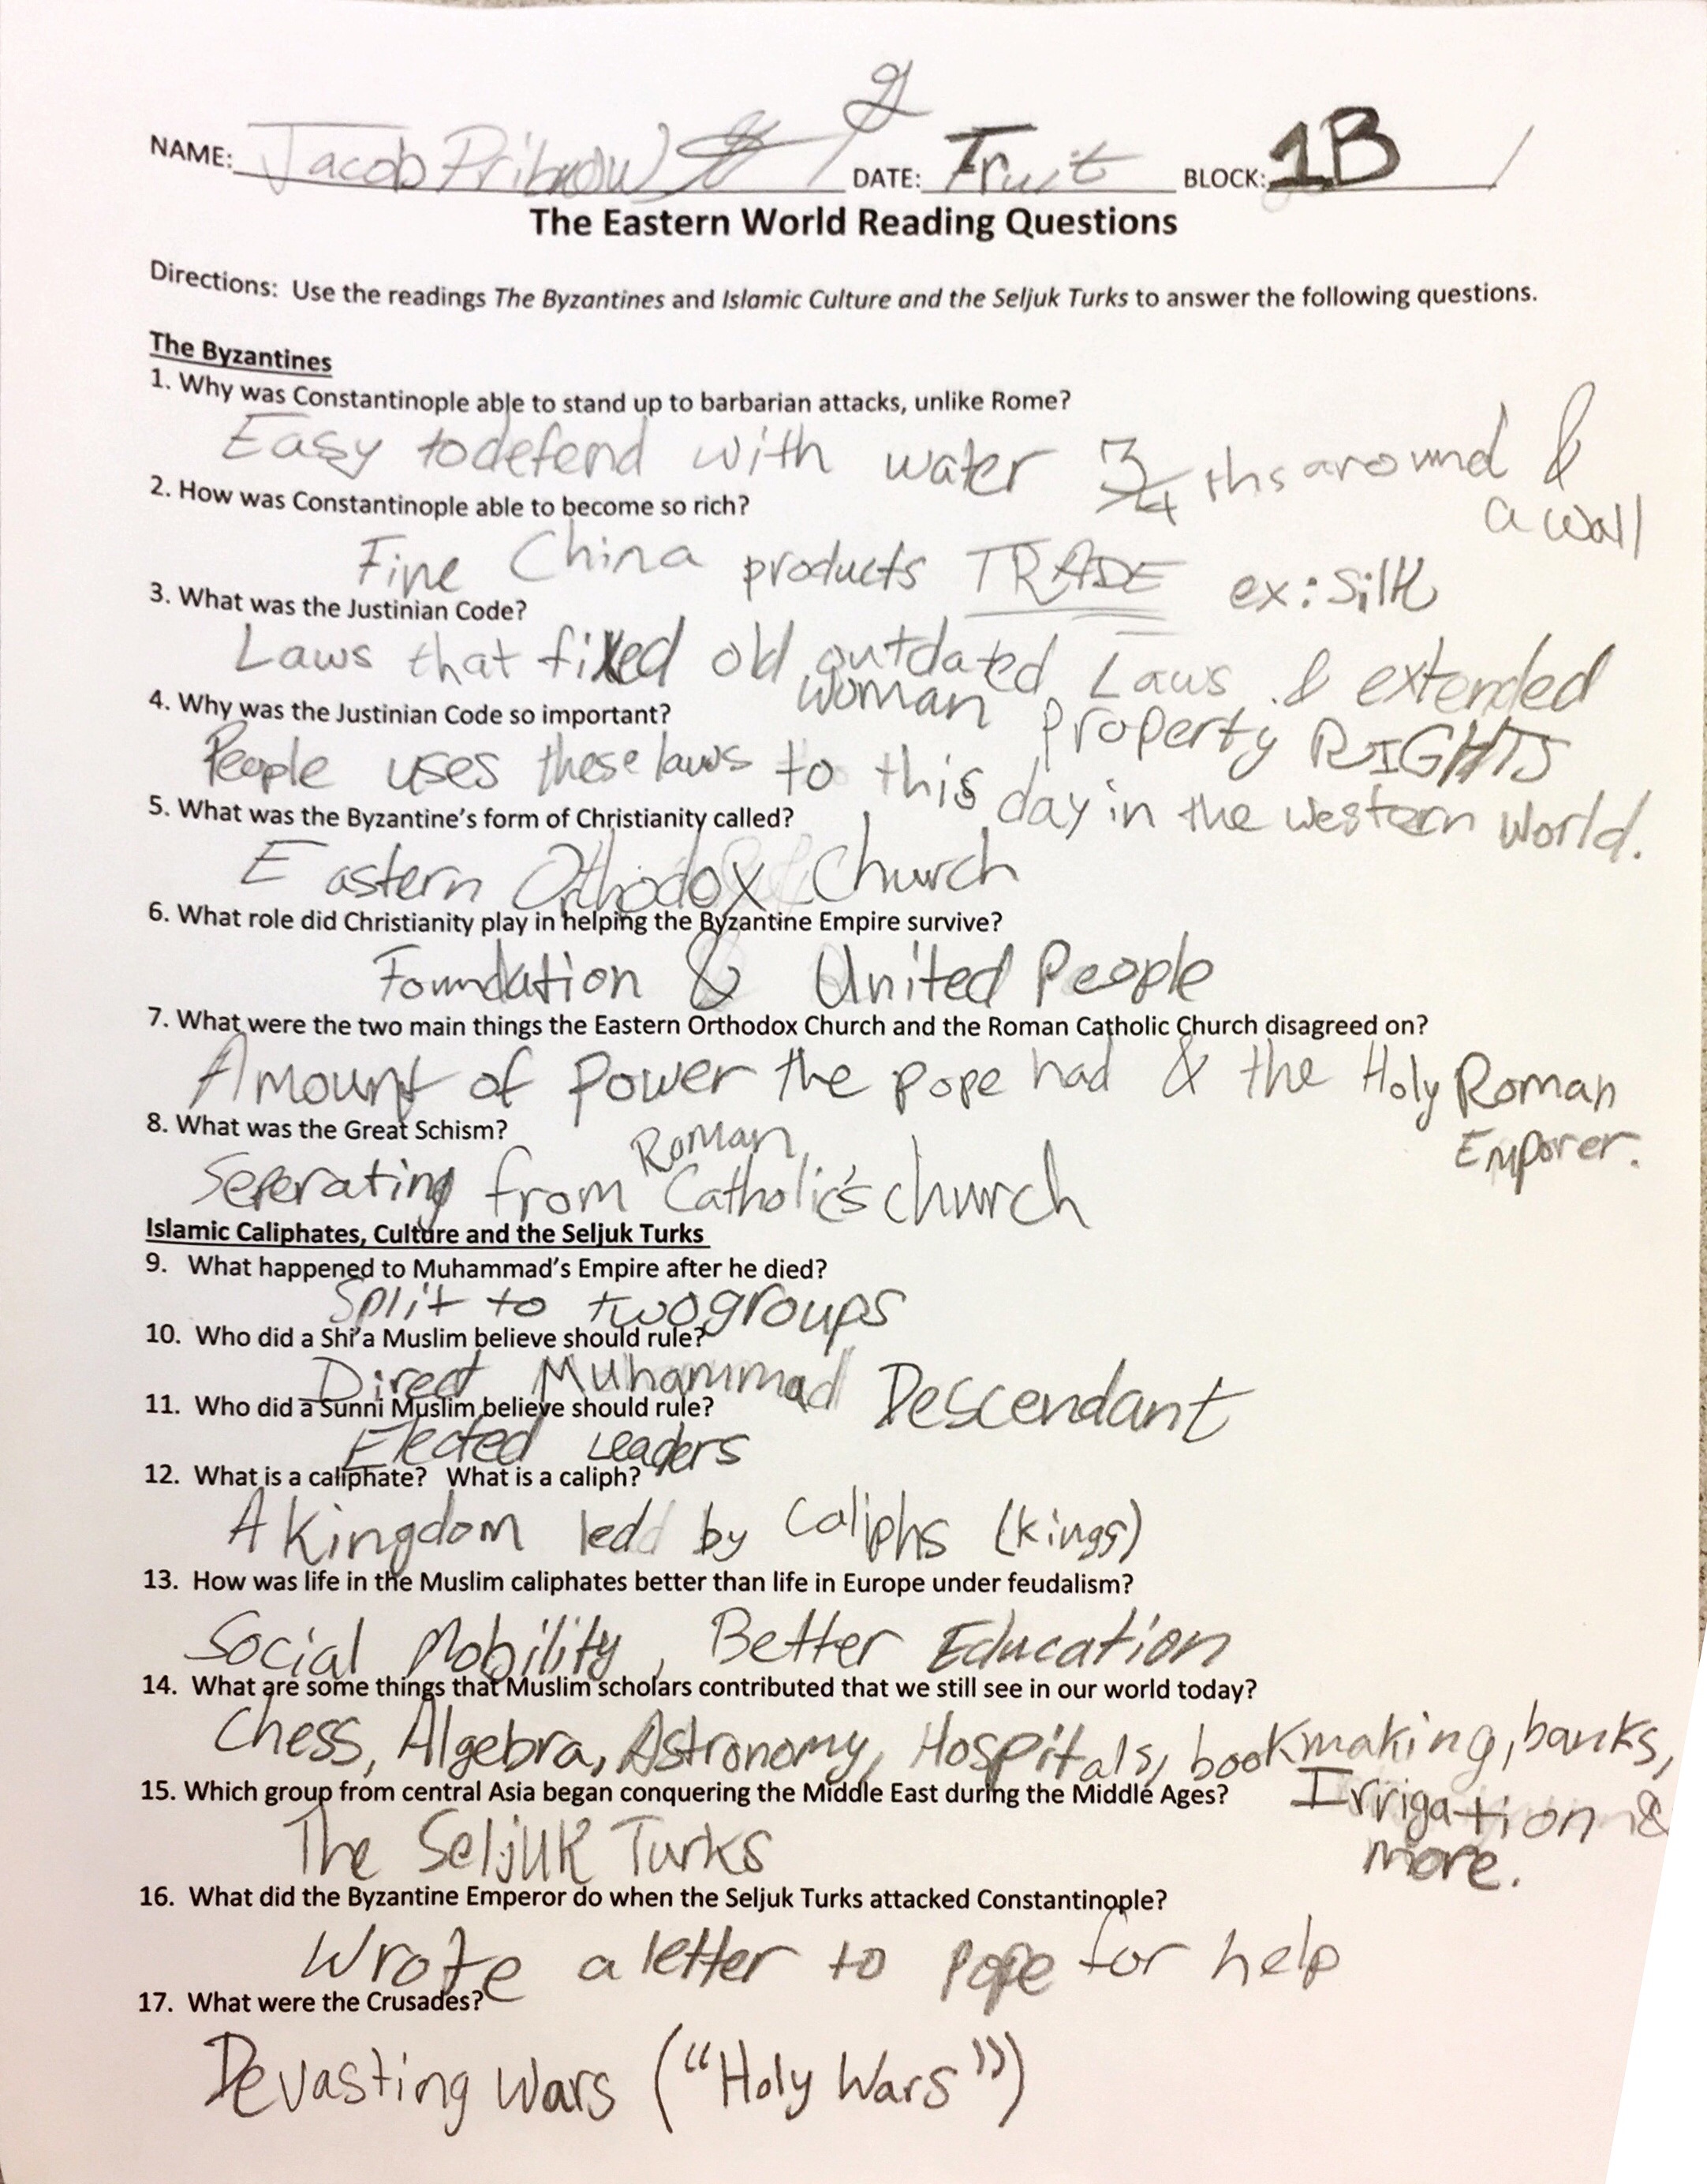 NAME: Jacob Pribnow DATE: Fruit BLOCK: 1B
The Eastern World Reading Questions
Directions: Use the readings The Byzantines and Islamic Culture and the Seljuk Turks to answer the following questions.
The Byzantines
1. Why was Constantinople able to stand up to barbarian attacks, unlike Rome?
Easy to defend with water 3/4 ths around &
a wall
2. How was Constantinople able to become so rich?
Fine China products TRADE ex: Silk
3. What was the Justinian Code?
Laws that fixed old outdated Laws & extended
woman property RIGHTS
4. Why was the Justinian Code so important?
People uses these laws to this day in the western World.
5. What was the Byzantine's form of Christianity called?
Eastern Orthodox Church
6. What role did Christianity play in helping the Byzantine Empire survive?
Foundation & United People
7. What were the two main things the Eastern Orthodox Church and the Roman Catholic Church disagreed on?
Amount of Power the pope had & the Holy Roman
Emporer.
8. What was the Great Schism?
Seperating from Roman Catholic's church
Islamic Caliphates, Culture and the Seljuk Turks
9. What happened to Muhammad's Empire after he died?
Split to two groups
10. Who did a Shi'a Muslim believe should rule?
Direct Muhammad Descendant
11. Who did a Sunni Muslim believe should rule?
Elected Leaders
12. What is a caliphate? What is a caliph?
A Kingdom led by Caliphs (kings)
13. How was life in the Muslim caliphates better than life in Europe under feudalism?
Social Mobility, Better Education
14. What are some things that Muslim scholars contributed that we still see in our world today?
Chess, Algebra, Astronomy, Hospitals, bookmaking, banks,
Irrigation &
more.
15. Which group from central Asia began conquering the Middle East during the Middle Ages?
The Seljuk Turks
16. What did the Byzantine Emperor do when the Seljuk Turks attacked Constantinople?
Wrote a letter to Pope for help
17. What were the Crusades?
Devasting Wars ("Holy Wars")